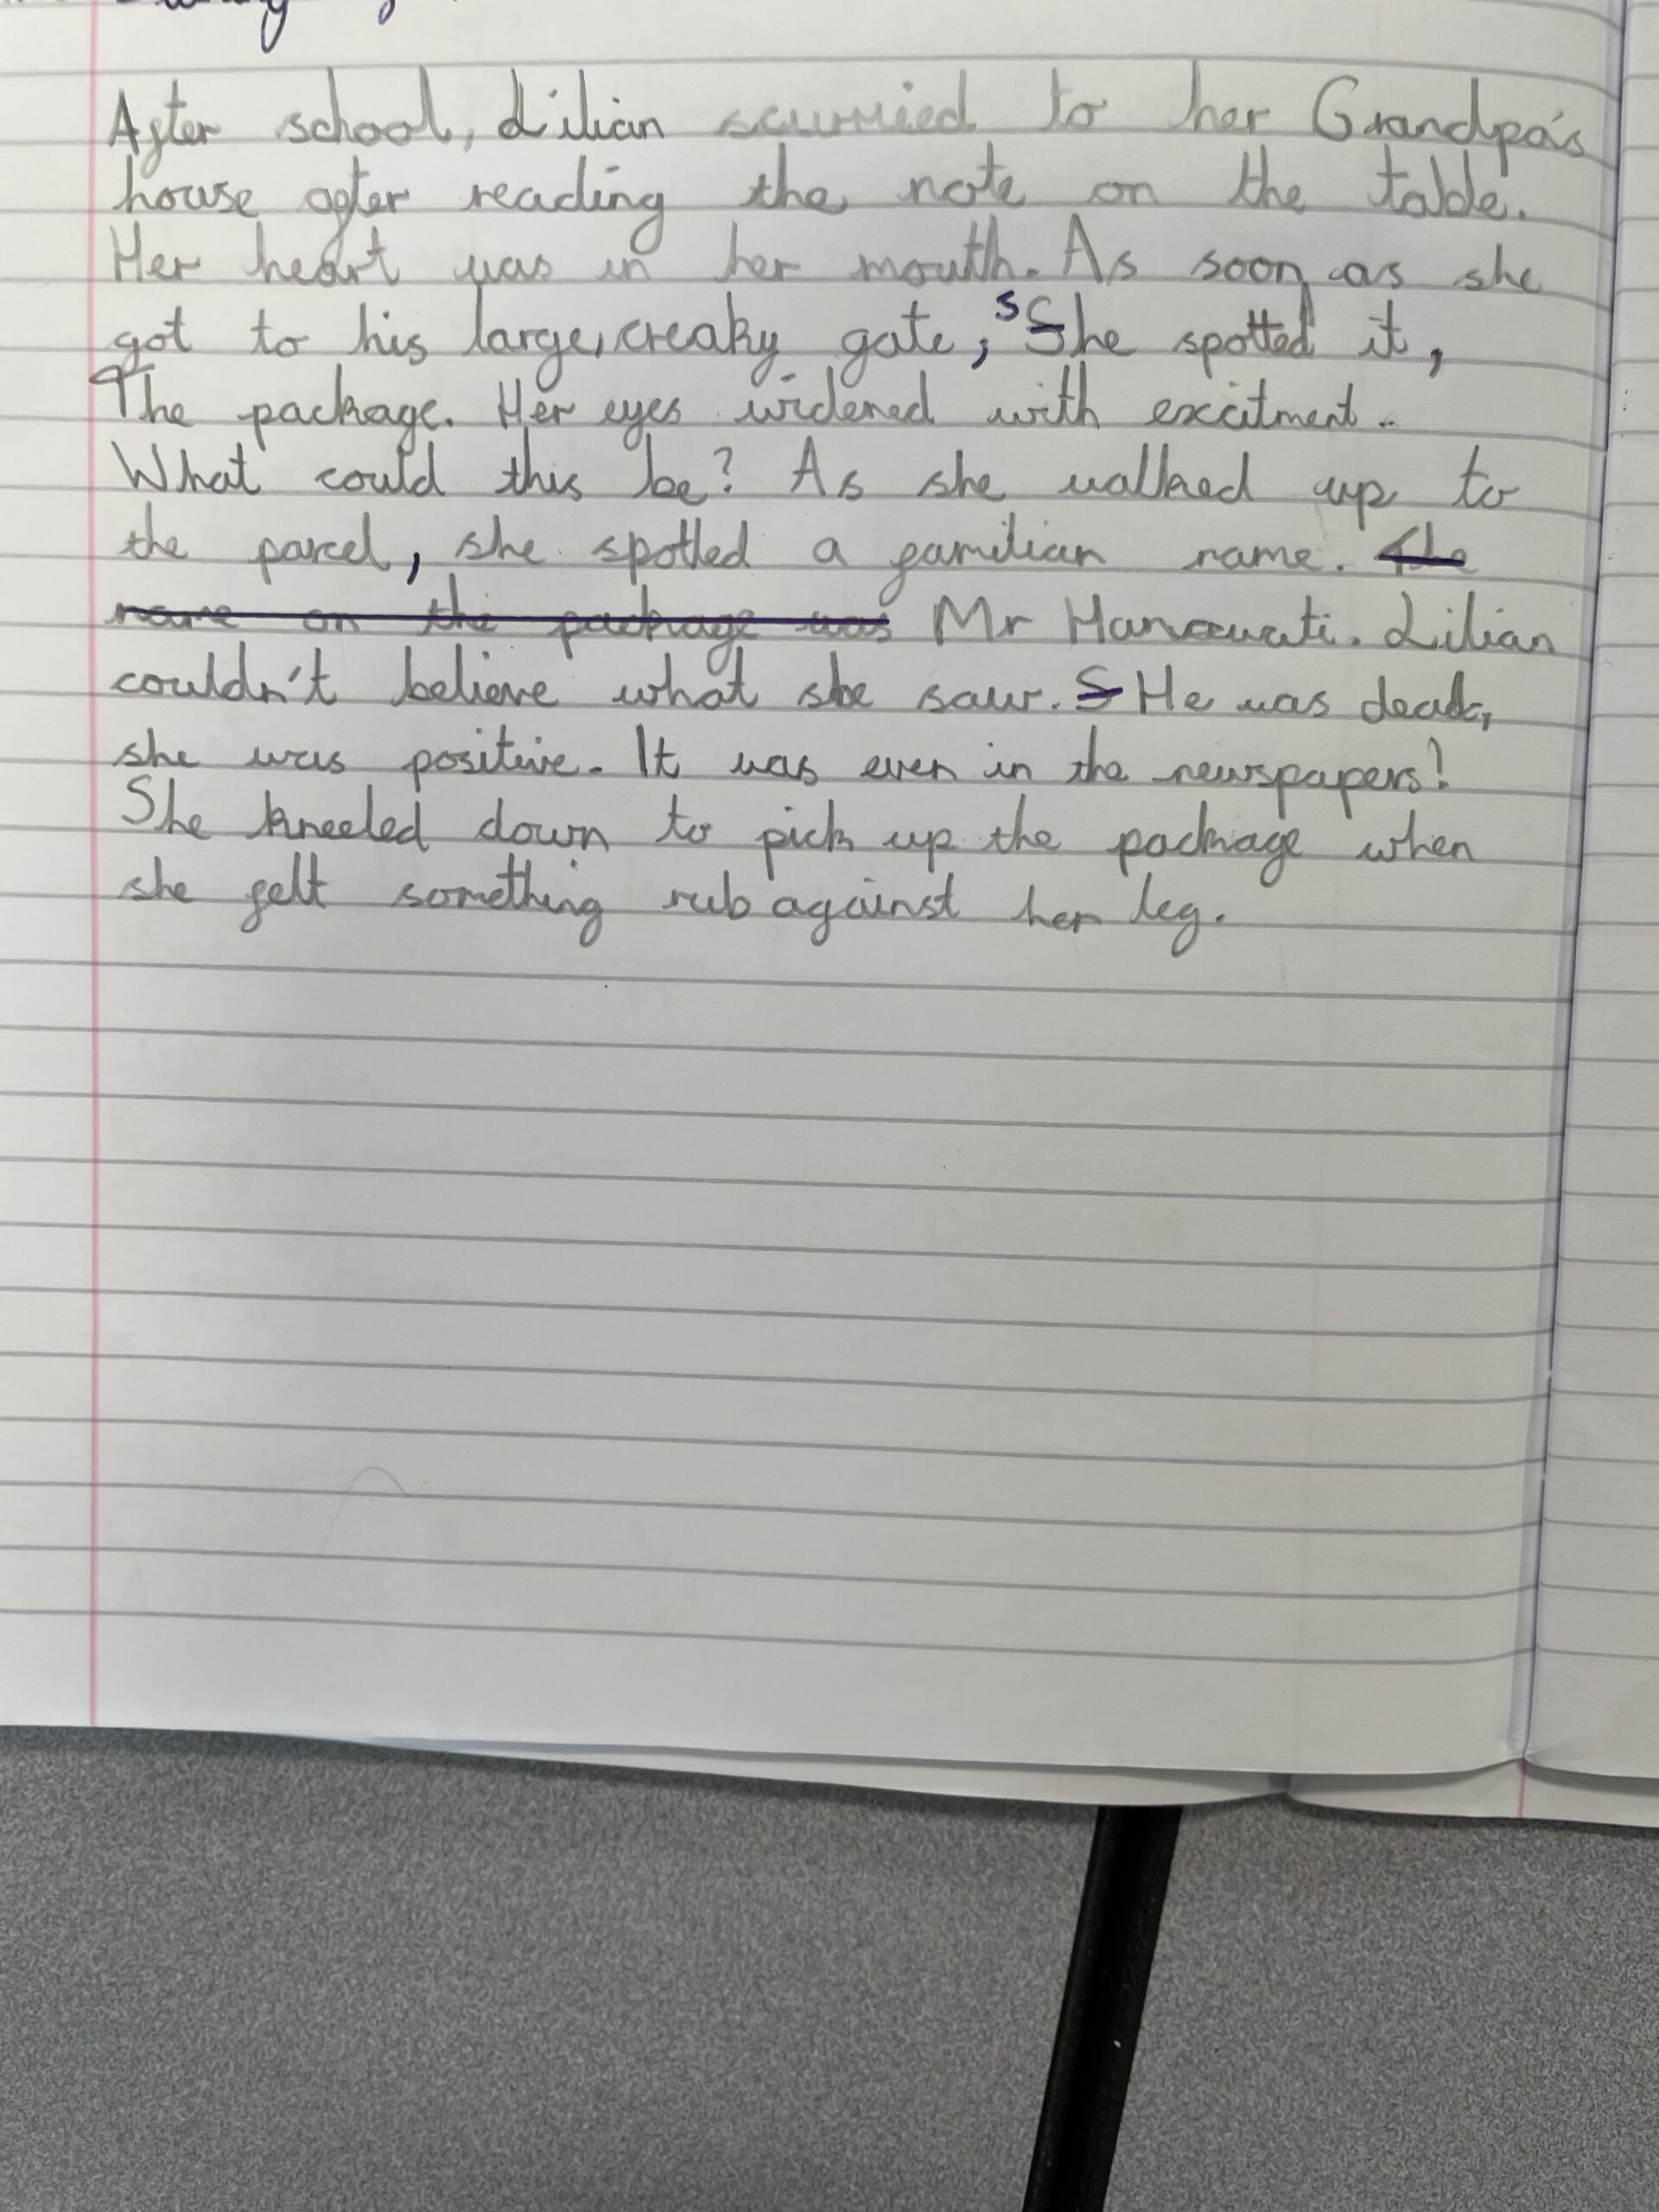 After school, Lilian scurried to her Grandpa's
house after reading the note on the table.
Her heart was in her mouth. As soon as she
got to his large, creaky gate, she spotted it,
The package. Her eyes widened with excitment.
What could this be? As she walked up to
the parcel, she spotted a familiar name. The
name on the package was Mr Hanawati. Lilian
couldn't believe what she saw. S He was dead,
she was positive. It was even in the newspapers!
She kneeled down to pick up the package when
she felt something rub against her leg.